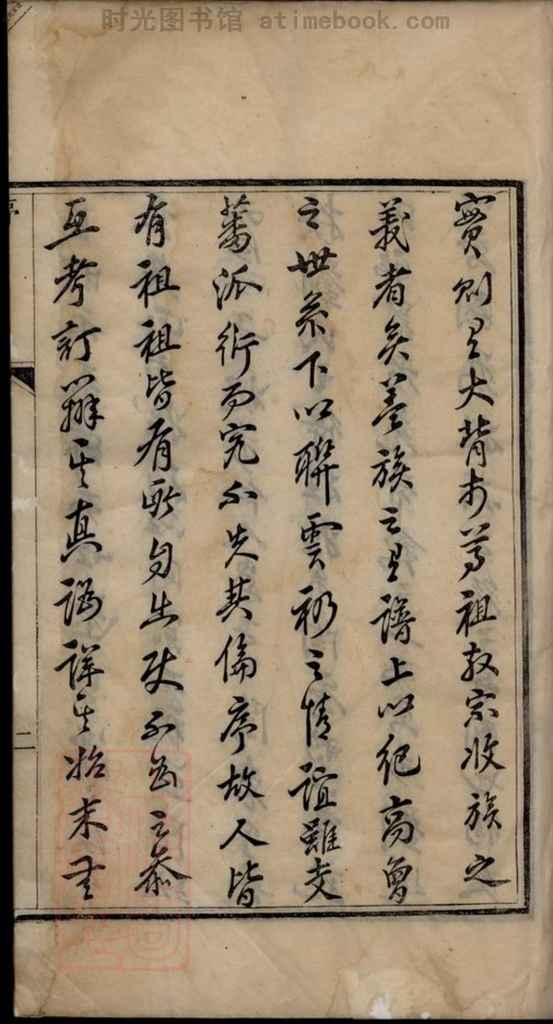 时光图书馆 - atimebook.com
實則且大背於尊祖敬宗收族之
義者矣蓋族之有譜上以紀高曾
之世系下以聯雲礽之情誼雖支
蕃派衍而究不失其倫序故人皆
有祖祖皆有所自出使不為之參
互考訂辨其真譌詳其始末無
二